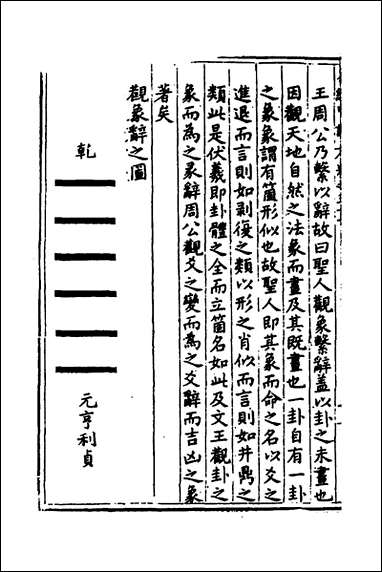 王周公乃繫以辭故曰聖人觀象繫辭蓋以卦之未畫也
因觀天地自然之法象而畫及其既畫也一卦自有一卦
之象象謂有箇形似也故聖人即其象而命之名以爻之
進退而言則如剥復之類以形之肖似而言則如井鼎之
類此是伏羲即卦體之全而立箇名如此及文王觀卦之
象而為之彖辭周公觀爻之變而為之爻辭而吉凶之象
著矣
觀象辭之圖
乾
元亨利貞